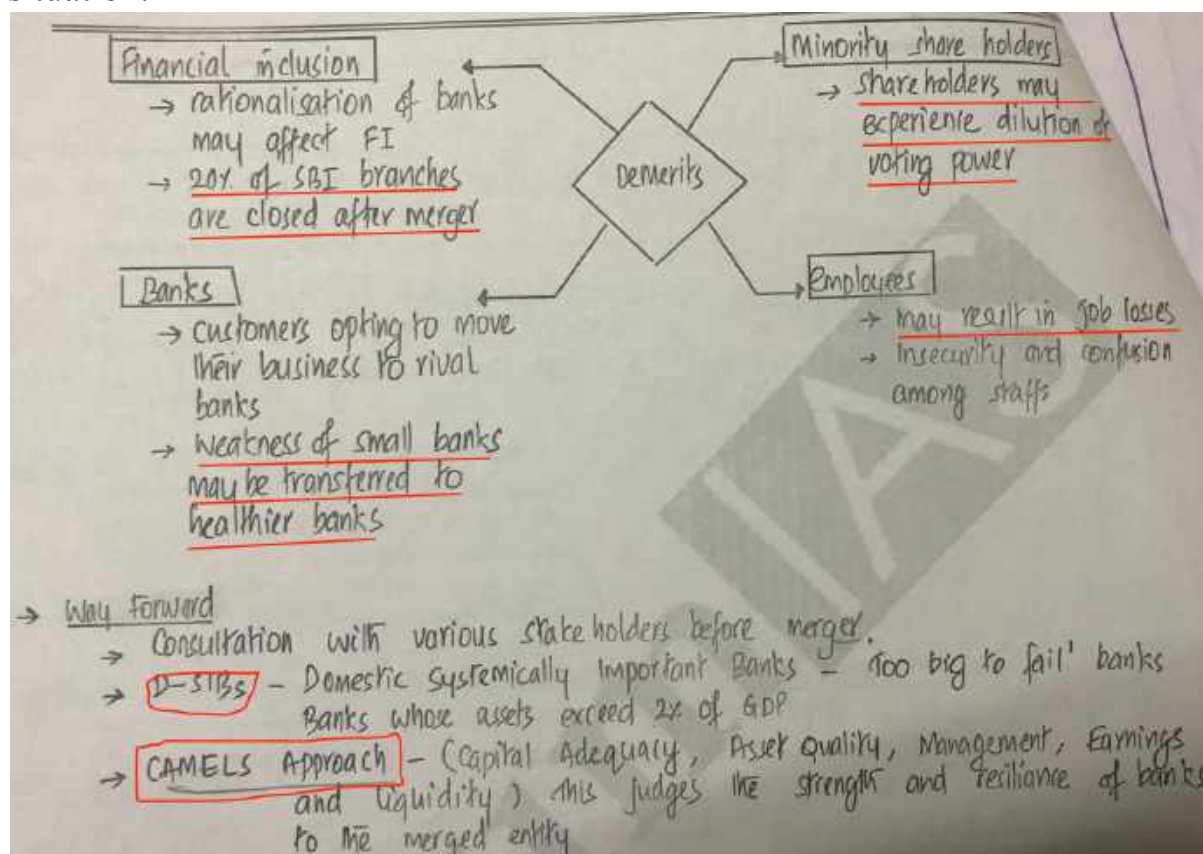 Financial inclusion
→ rationalisation of banks
may affect FI
→ 20% of SBI branches
are closed after merger
Minority share holders
→ shareholders may
experience dilution of
voting power
Demerits
Banks
→ customers opting to move
their business to rival
banks
→ Weakness of small banks
may be transferred to
healthier banks
Employees
→ may result in job losses
→ Insecurity and confusion
among staffs
IAS
→ Way Forward
→ Consultation with various stakeholders before merger.
→ D-SIBs - Domestic Systemically Important Banks - 'Too big to fail' banks
Banks whose assets exceed 2% of GDP
→ CAMELS Approach - (Capital Adequacy, Asset Quality, Management, Earnings
and Liquidity) this judges the strength and resiliance of banks
to the merged entity